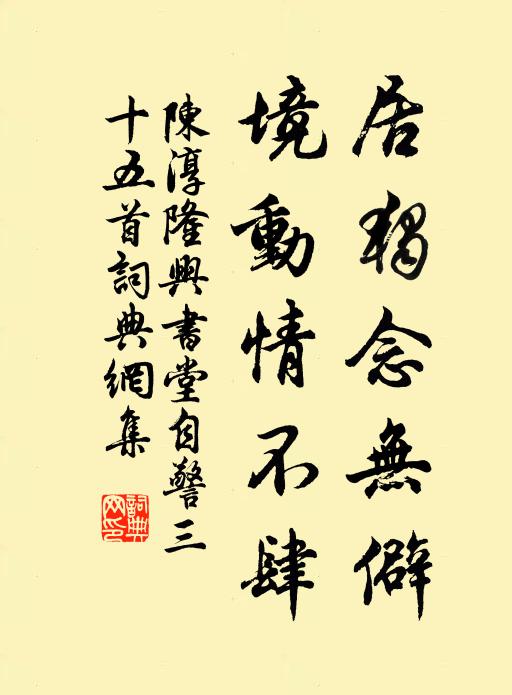 居獨念無僻
境動情不肆
陳淳隆興書堂自警三
十五首詞典網集
詞典
网印